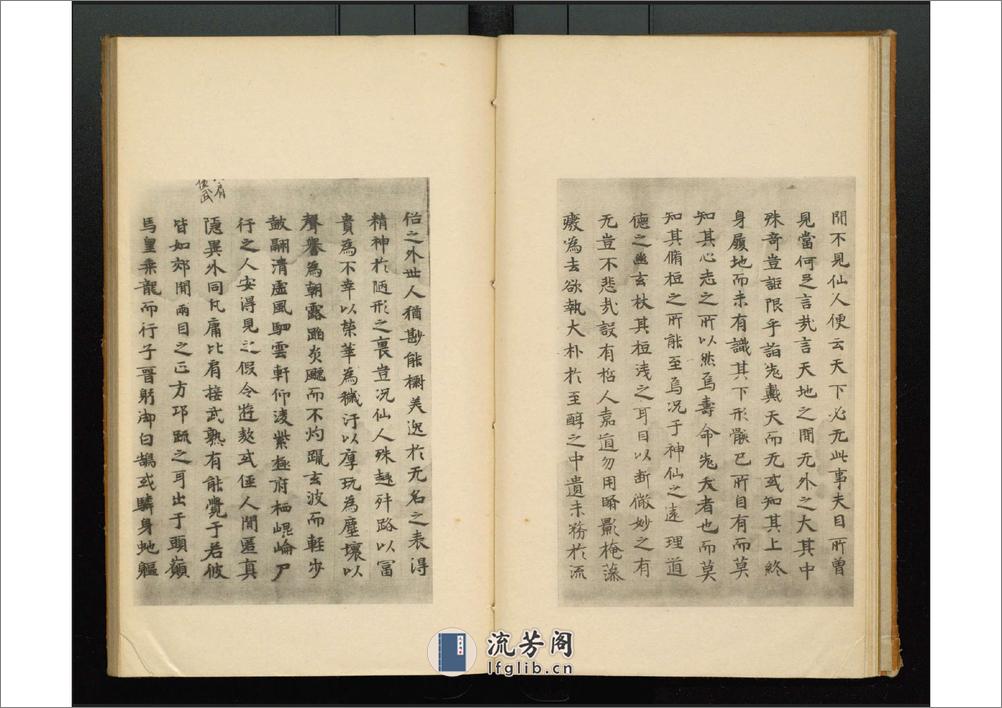 間不見仙人便云天下必无此事夫目所曾
見當何足言㢤言天地之間无外之大其中
殊奇豈詎限乎詣老戴天而无或知其上終
身履地而未有識其下形骸已所自有而莫
知其心志之所以然焉壽命老夭者也而莫
知其脩桓之所能至焉况于神仙之遠理道
德之幽玄杖其桓淺之耳目以断微妙之有
无豈不悲㢤設有悊人嘉道勿用翳影掩藻
廢為去欲執大朴於至醇之中遺末務於流
俗之外世人猶尠能𣃁美逸於无名之表得
精神於陋形之裏豈况仙人殊趍舛路以富
貴為不幸以榮華為穢汙以厚玩為塵壤以
聲譽為朝露蹈炎飇而不灼躡玄波而軽步
鼓翮清虛風駟雲軒仰淩紫極府栖崐崘尸
行之人安得見之假令遊敖或俓人間匿真
隱異外同凡庸比肩接武熟有能覺于若彼
皆如郊間兩目之正方邛䟽之耳出于頭巔
馬皇乗龍而行子晋躬御白鵠或驎身虵軀
流芳阁
lfglib.cn